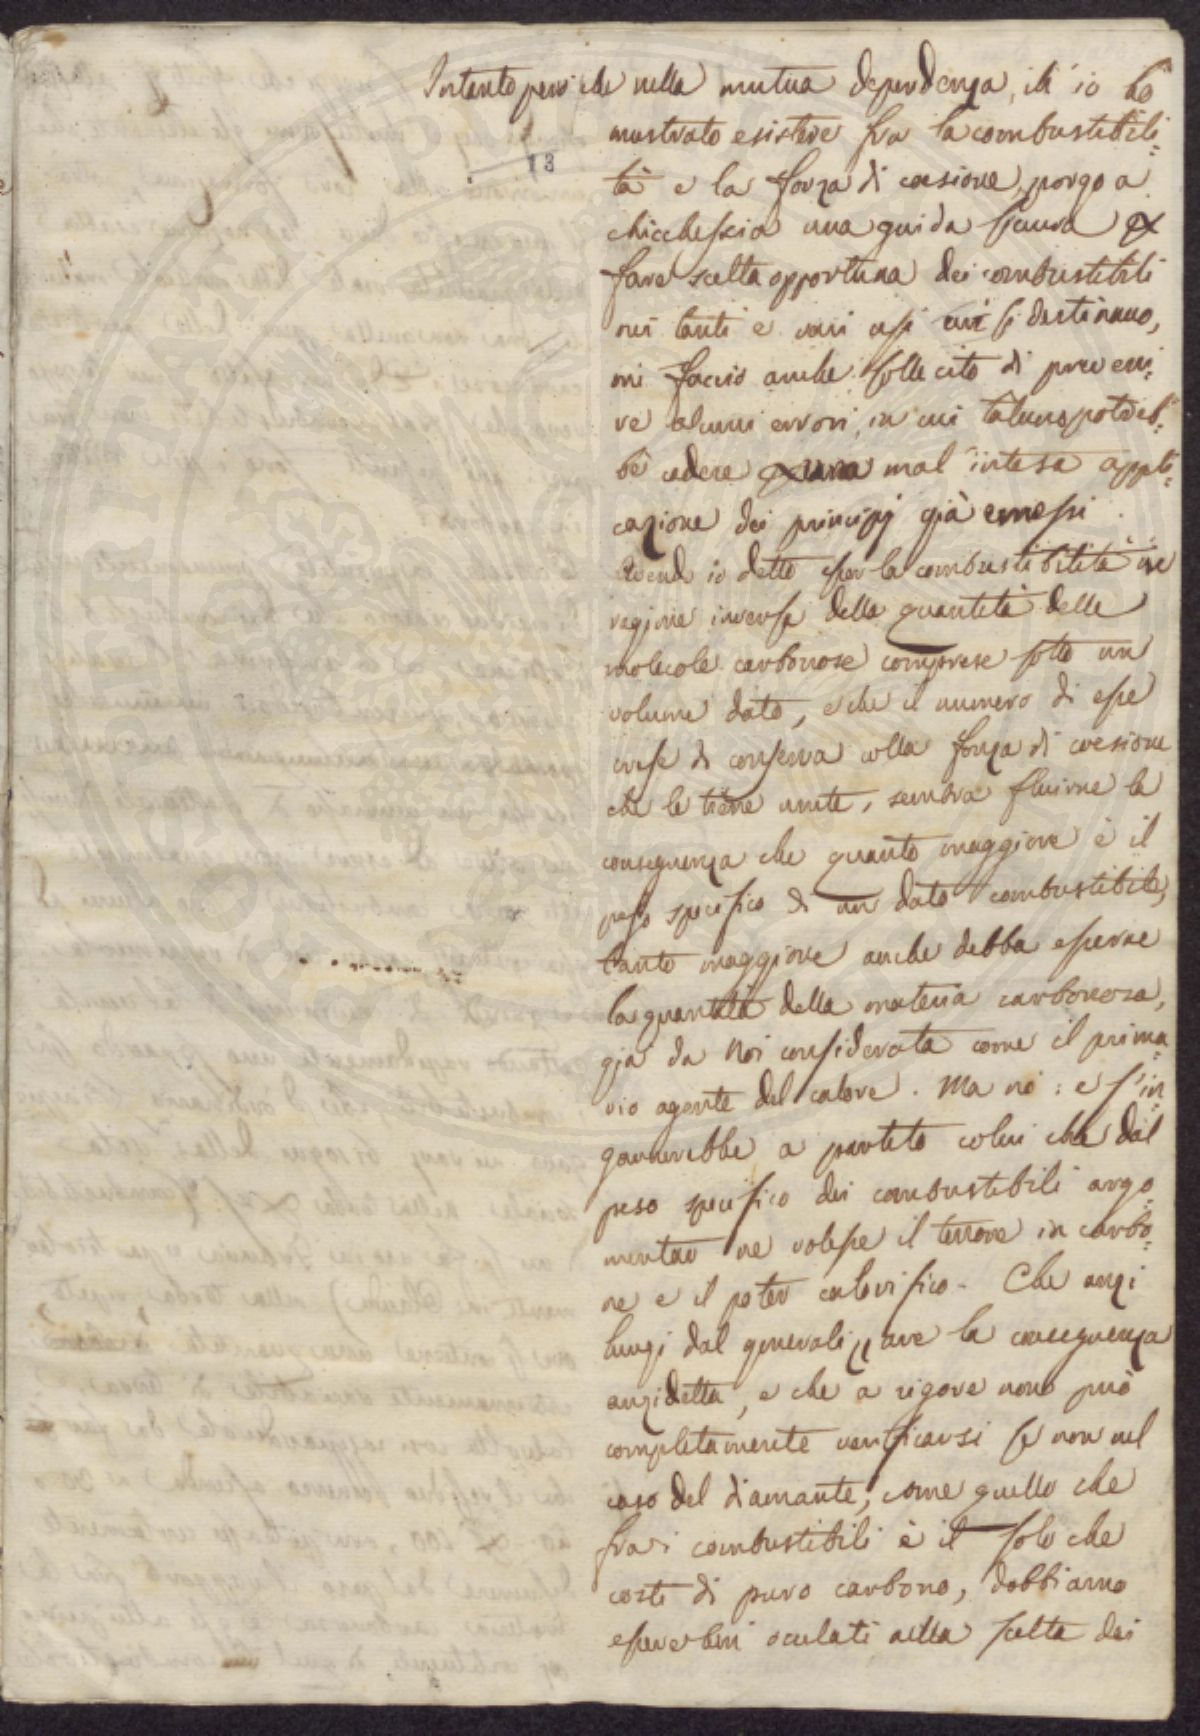 Intanto però che nella mutua dependenza, ch'io ho
13
mostrato esistere fra la combustibili-
tà e la forza di coesione, porgo a
chicchessia una guida sicura
fare scelta opportuna dei combustibili
nei tanti e vari usi cui si destinano,
mi faccio anche sollecito di preveni-
re alcuni errori, in cui taluno potreb-
be cadere una mal intesa appli-
cazione dei principj già emessi.
Avend'io detto esser la combustibilità in
ragione inversa della quantità delle
molecole carbonose comprese sotto un
volume dato, e che il numero di esse
cresce di conserva colla forza di coesione
che le tiene unite, sembra fluirne la
conseguenza che quanto maggiore è il
peso specifico di un dato combustibile,
tanto maggiore anche debba esserne
la quantità della materia carbonosa,
già da Noi considerata come il prima-
rio agente del calore. Ma nò: e s'in-
gannerebbe a partito colui che dal
peso specifico dei combustibili argo-
mentar ne volesse il tenore in carbo-
ne e il poter calorifico. Che anzi
lungi dal generalizzare la conseguenza
anzidetta, e che a rigore nono può
completamente verificarsi se non nel
caso del diamante, come quello che
fra i combustibili è il solo che
costi di puro carbono, dobbiamo
esser ben oculati nella scelta dei